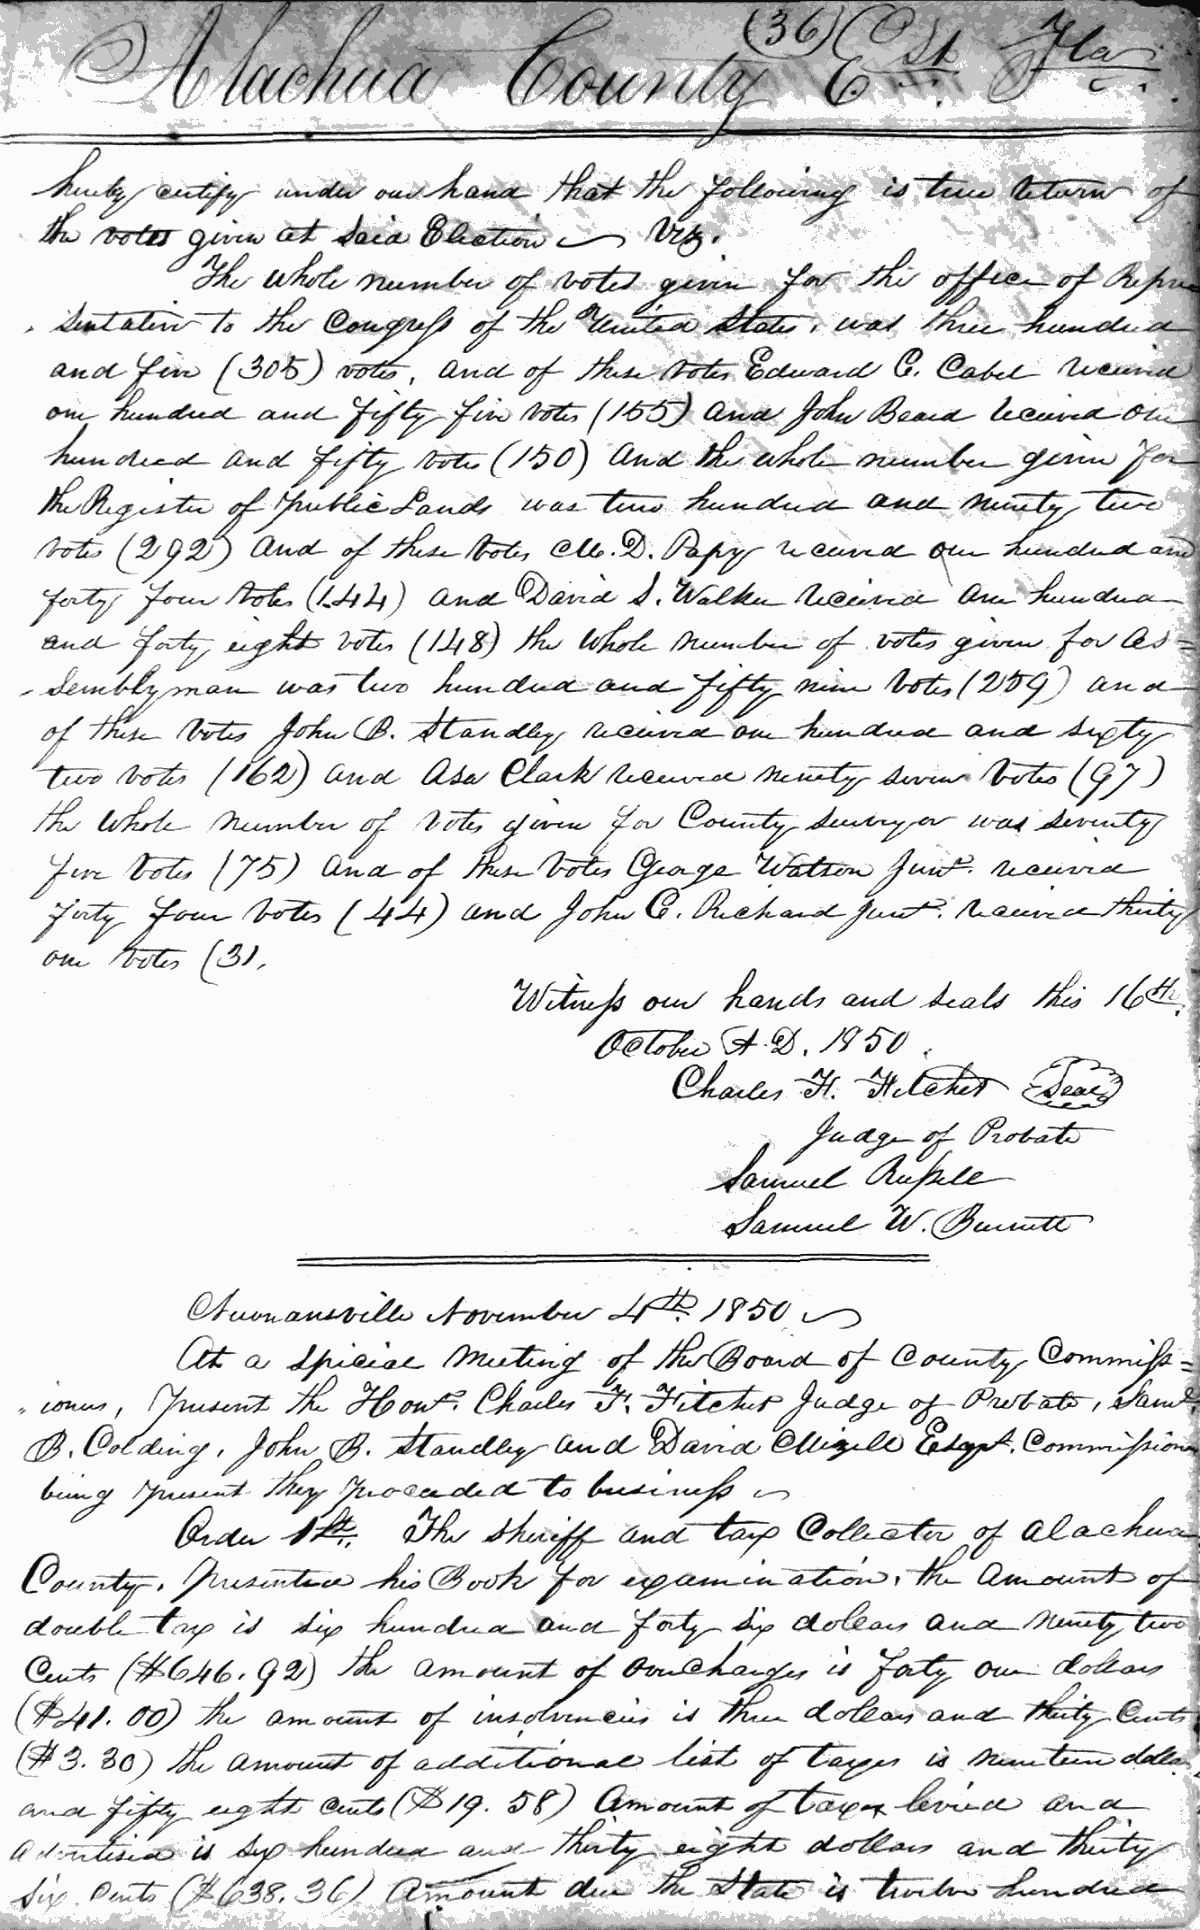 (36)
Alachua County E. St. Fla
hereby certify under our hand that the following is true return of
the votes given at said Election Viz.
The whole number of votes given for the office of Repre
sentative to the Congress of the United States, was three hundred
and five (305) votes, and of these votes Edward C. Cabel received
one hundred and fifty five votes (155) and John Beard received one
hundred and fifty votes (150) and the whole number given for
the Register of public Lands was two hundred and ninety two
votes (292) and of these votes M. D. Papy received one hundred and
forty four votes (144) and David S. Walker received one hundred
and forty eight votes (148) the whole number of votes given for As=
semblyman was two hundred and fifty nine votes (259) and
of these votes John B. Standley received one hundred and sixty
two votes (162) and Asa Clark received ninety seven votes (97)
the whole number of votes given for County surveyor was seventy
five votes (75) and of these votes George Watson Junr. received
forty four votes (44) and John C. Richard Junr. received thirty
one votes (31,
Witness our hands and seals this 16th.
October A. D. 1850.
Charles F. Fitchet Seal
Judge of Probate
Samuel Russell
Samuel W. Burnett
Newnansville November 4th. 1850
At a special meeting of the Board of County Commiss=
ioners, present the Honr. Charles F. Fitchet Judge of Probate, Saml.
B. Colding, John B. Standley and David Mizell Esqr. Commissioners
being present they proceeded to business
Order 1st. The sheriff and tax Collector of Alachua
County, presented his Book for examination, the amount of
double tax is six hundred and forty six dollars and ninety two
Cents ($646.92) the amount of overcharges is forty one dollars
($41.00) the amount of insolvencies is three dollars and thirty Cents
($3.30) the amount of additional list of taxes is nineteen dollars
and fifty eight cents ($19.58) Amount of taxes levied and
advertised is six hundred and thirty eight dollars and thirty
six Cents ($638.36) Amount due the State is twelve hundred